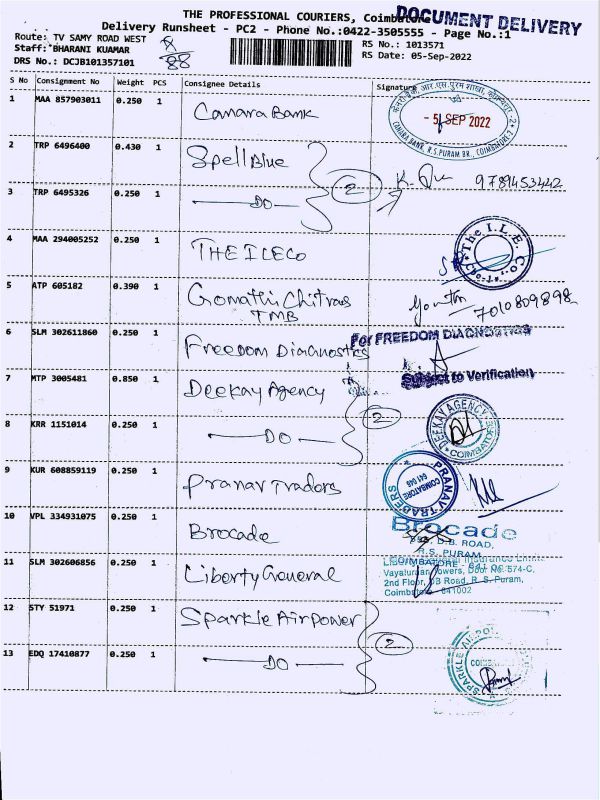 THE PROFESSIONAL COURIERS, Coimbatore
DOCUMENT DELIVERY
Delivery Runsheet - PC2 - Phone No.:0422-3505555 - Page No.:1
Route: TV SAMY ROAD WEST
RS No.: 1013571
Staff: BHARANI KUAMAR
RS Date: 05-Sep-2022
DRS No.: DCJB101357101
88
S No Consignment No Weight PCS Consignee Details Signature
1 MAA 857903011 0.250 1 Canara Bank
- 5 SEP 2022
CANARA BANK, R.S.PURAM BR., COIMBATORE-2
2 TRP 6496400 0.430 1 SpellBlue
2
9789453442
3 TRP 6495326 0.250 1 DO
4 MAA 294005252 0.250 1 THE ILECo
The I.L.E. Co.,
5 ATP 605182 0.390 1 Gomathi Chitras
TMB
7010809898
6 SLM 302611860 0.250 1 Freedom Diagnostics
For FREEDOM DIAGNOSTICS
Subject to Verification
7 MTP 3005481 0.850 1 Deekay Agency
2
DEEKAY AGENCY
COIMBATORE
8 KRR 1151014 0.250 1 DO
9 KUR 608859119 0.250 1 Pranav Traders
PRANAV TRADERS
COIMBATORE
641 046
10 VPL 334931075 0.250 1 Brocade
Brocade
D.B. ROAD,
R.S. PURAM
11 SLM 302606856 0.250 1 Liberty General
COIMBATORE - 641
Vayalurdan Towers, Door No. 574-C,
2nd Floor, DB Road, R. S. Puram,
Coimbatore 641002
12 STY 51971 0.250 1 Sparkle Airpower
2
SPARKLE AIRPO
13 EDQ 17410877 0.250 1 DO